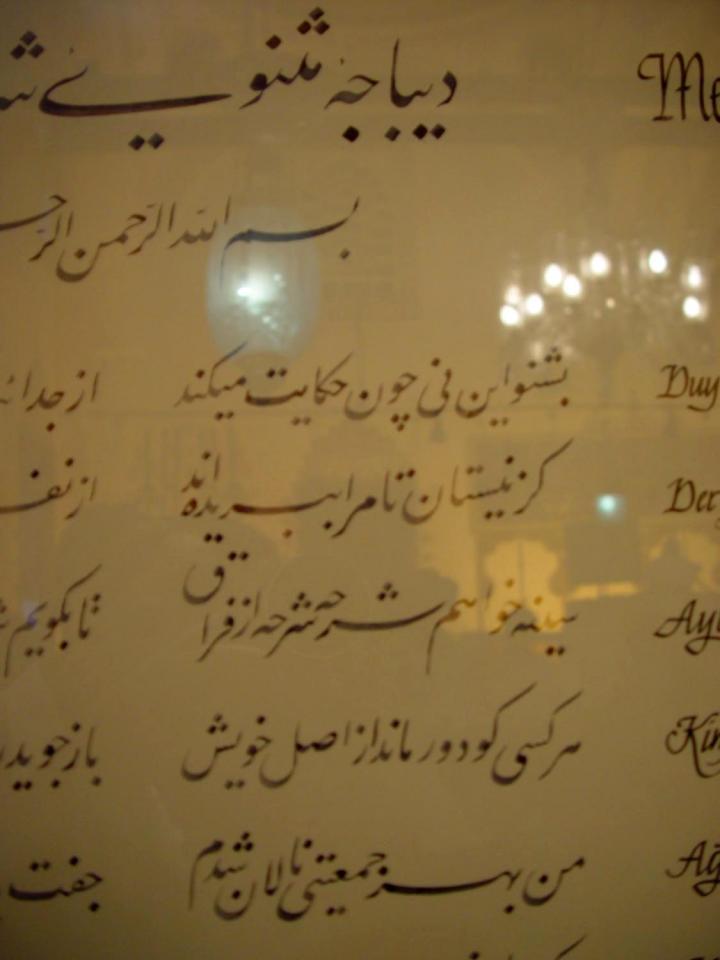 دیباجهٔ مثنویے Me
بسم الله الرّحمن الرّحـ
بشنو این نی چون حکایت میکند از جدائـ Duy
کز نیستان تا مرا ببریده اند از نفـ Der
سینه خواهم شرحه شرحه از فراق تا بگویم Ay
هر کسی کو دور ماند از اصل خویش باز جوید Kin
من بهر جمعیتی نالان شدم جفت Ağ